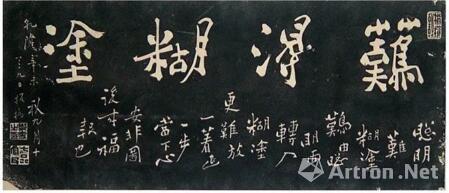 難得糊塗
聰明
難
糊塗
難由聰
明而
轉入
糊塗
更難放
一着退
一步
當下心
安非圖
後来福
報也
乾隆辛未秋九月十
有九日板橋
Artron.Net